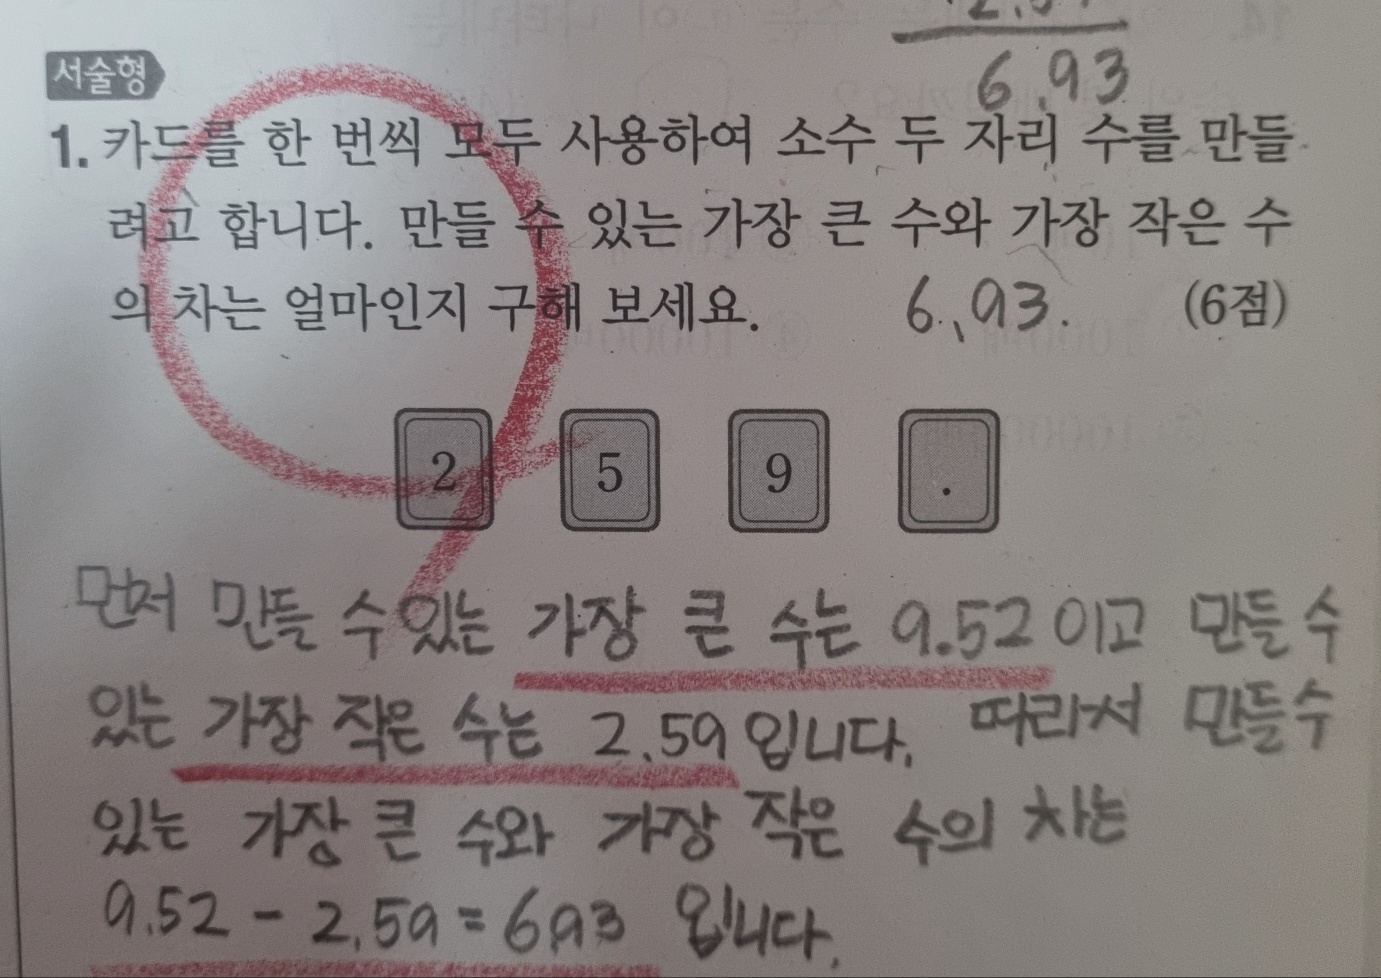 6.93
서술형
1. 카드를 한 번씩 모두 사용하여 소수 두 자리 수를 만들
려고 합니다. 만들 수 있는 가장 큰 수와 가장 작은 수
의 차는 얼마인지 구해 보세요. 6.93. (6점)
2 5 9 .
먼저 만들 수 있는 가장 큰 수는 9.52이고 만들 수
있는 가장 작은 수는 2.59입니다. 따라서 만들 수
있는 가장 큰 수와 가장 작은 수의 차는
9.52 - 2.59 = 6.93 입니다.